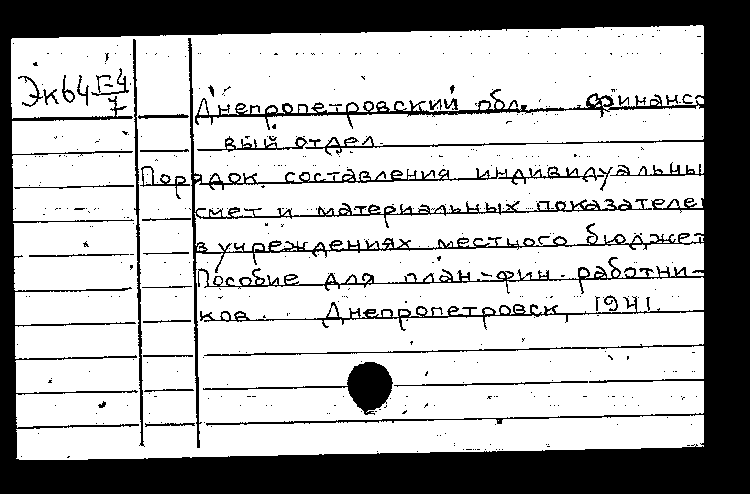 Эк64 Г-4/7
Днепропетровский обл. финансо
вый отдел.
Порядок составления индивидуальны
смет и материальных показателе
в учреждениях местного бюджет
Пособие для план.-фин. работни-
ков. Днепропетровск, 1941.